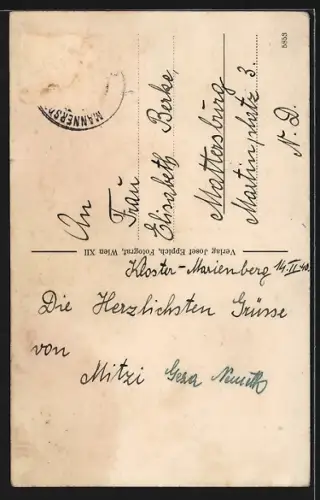 An
Frau
Elisabeth Berke,
Mattersburg
Martinplatz 3.
N. D.
5853
MANNERSD
Verlag Josef Eppich, Fotograf, Wien XII
Kloster-Marienberg 14.II.40.
Die Herzlichsten Grüsse
von
Mitzi Geza Nemeth